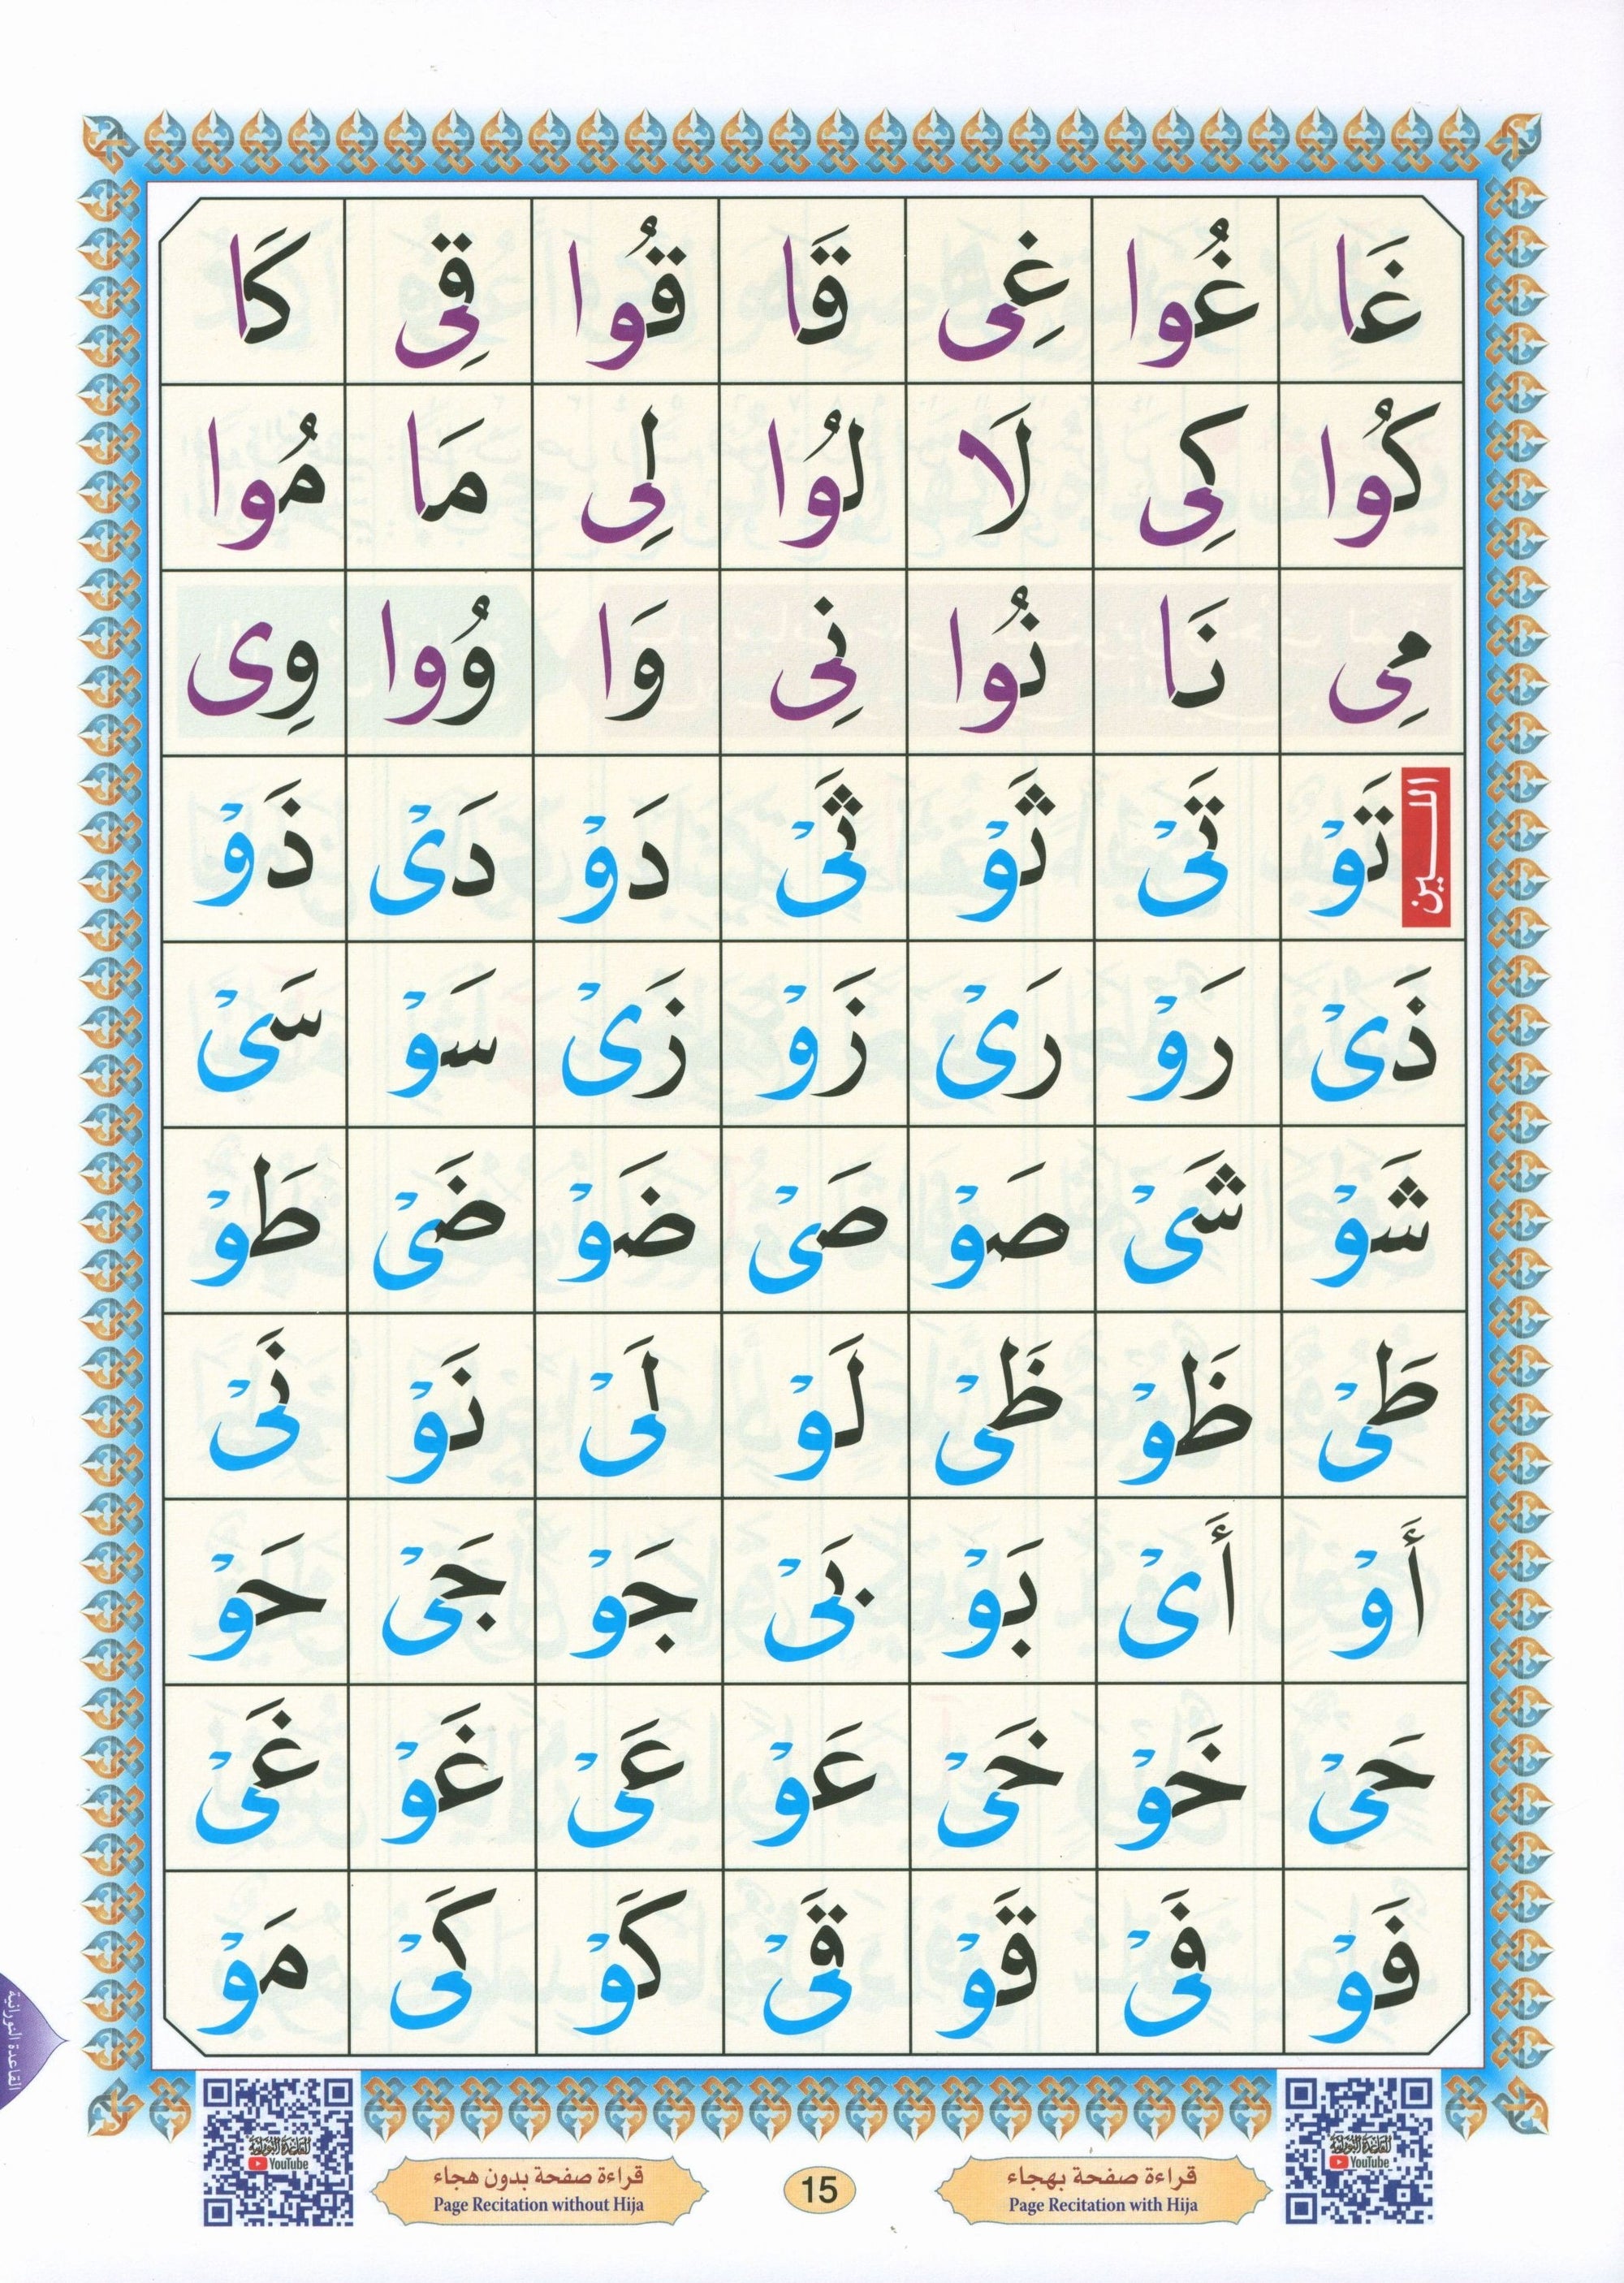 غَا غُوا غِى قَا قُوا قِى كَا
كُوا كِى لَا لُوا لِى مَا مُوا
مِى نَا نُوا نِى وَا وُوا وِى
الليـن
تَوْ تَىْ ثَوْ ثَىْ دَوْ دَىْ ذَوْ
ذَىْ رَوْ رَىْ زَوْ زَىْ سَوْ سَىْ
شَوْ شَىْ صَوْ صَىْ ضَوْ ضَىْ طَوْ
طَىْ ظَوْ ظَىْ لَوْ لَىْ نَوْ نَىْ
أَوْ أَىْ بَوْ بَىْ جَوْ جَىْ حَوْ
حَىْ خَوْ خَىْ عَوْ عَىْ غَوْ غَىْ
فَوْ فَىْ قَوْ قَىْ كَوْ كَىْ مَوْ
القاعدة النورانية
القاعدة النورانية
YouTube
قراءة صفحة بهجاء
Page Recitation with Hija
15
قراءة صفحة بدون هجاء
Page Recitation without Hija
القاعدة النورانية
YouTube